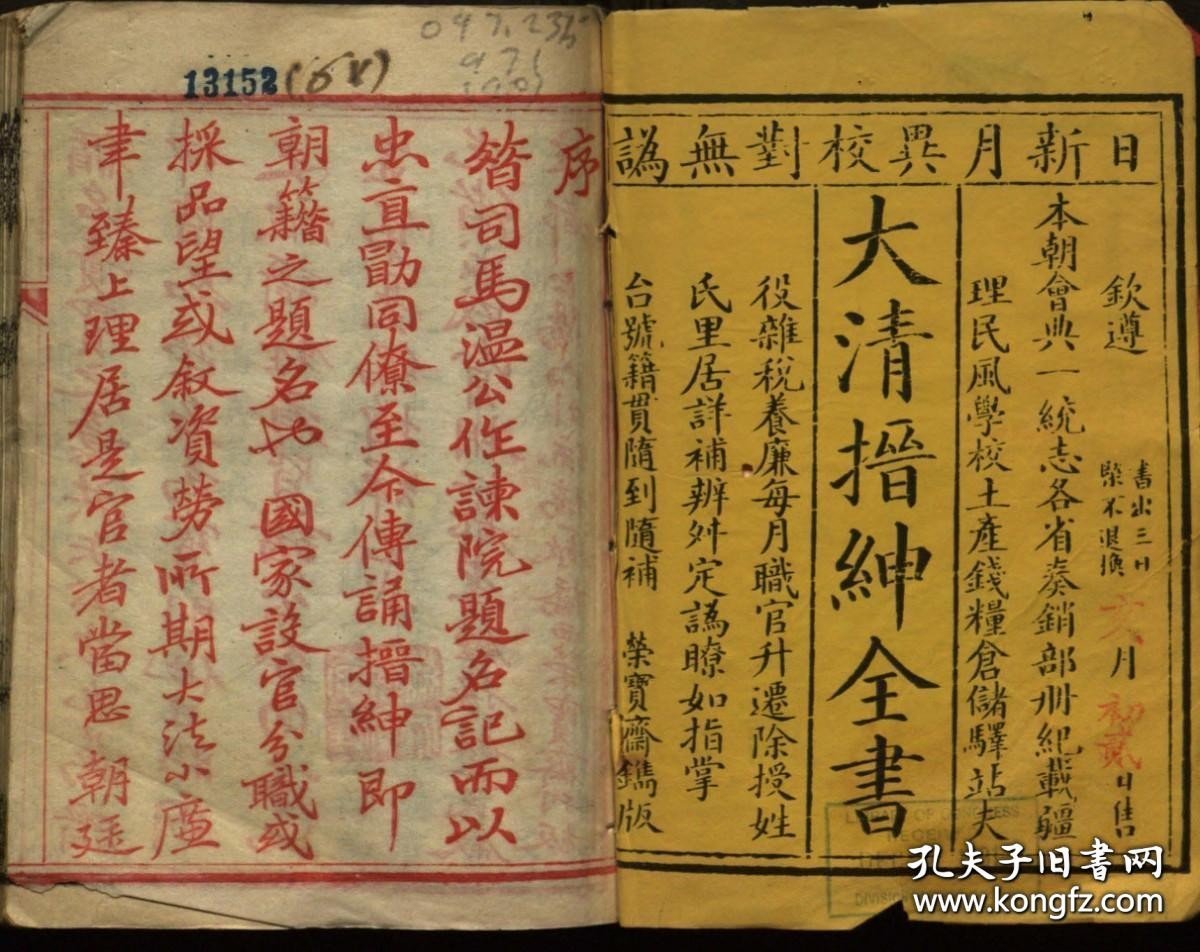 日新月異校對無譌
欽遵
書出三日
槩不退換
六月初貳日售
本朝會典一統志各省奏銷部冊紀載疆
理民風學校土產錢糧倉儲驛站夫
大清搢紳全書
役雜稅養廉每月職官升遷除授姓
氏里居詳補辨舛定譌瞭如指掌
台號籍貫隨到隨補 榮寶齋鐫版
13152
序
昝司馬溫公作諫院題名記而以
忠直勖同僚至今傳誦搢紳即
朝籍之題名也 國家設官分職或
採品望或叙資勞所期大法小廉
聿臻上理居是官者當思朝廷
LIBRARY OF CONGRESS
孔夫子旧书网
www.kongfz.com